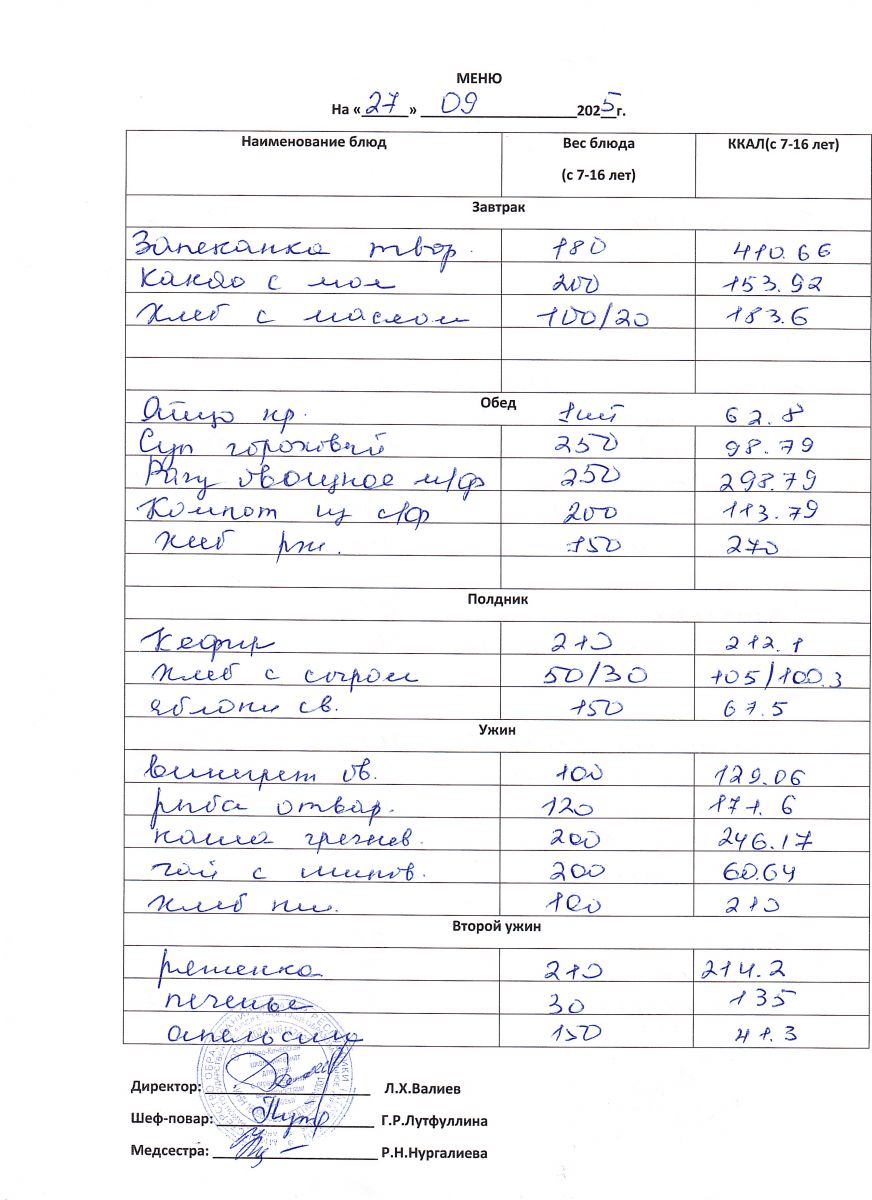 МЕНЮ
На «27» 09 2025г.
Наименование блюд Вес блюда (с 7-16 лет) ККАЛ(с 7-16 лет)
Завтрак
Запеканка твор. 180 410.66
Какао с мол 200 153.92
Хлеб с маслом 100/20 183.6
Обед
Яйцо кр. 1шт 62.8
Суп гороховый 250 98.79
Рагу овощное м/ф 250 298.79
Компот из с/ф 200 113.79
Хлеб рж. 150 270
Полдник
Кефир 210 212.1
Хлеб с сыром 50/30 105/100.3
яблоки св. 150 67.5
Ужин
винегрет ов. 100 129.06
рыба отвар. 120 171.6
каша гречнев. 200 246.17
чай с шипов. 200 60.64
хлеб пш. 100 210
Второй ужин
ряженка 210 214.2
печенье 30 135
апельсин 150 41.3
Директор: Л.Х.Валиев
Шеф-повар: Г.Р.Лутфуллина
Медсестра: Р.Н.Нургалиева